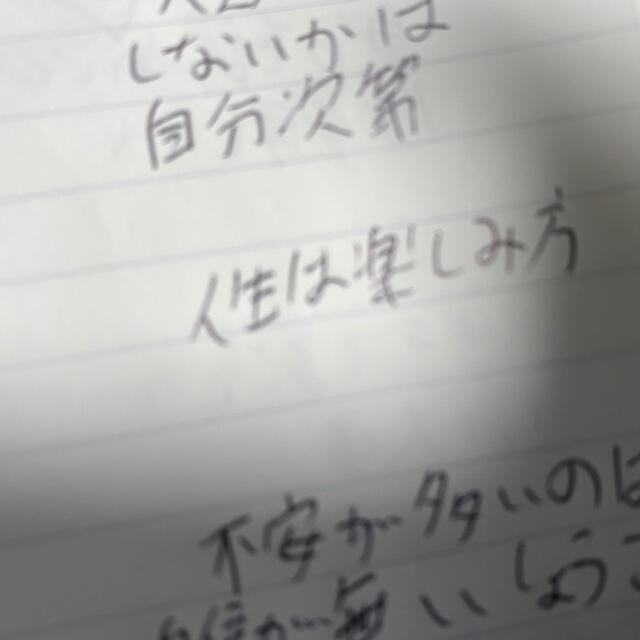 しないかは
自分次第
人生は楽しみ方
不安が多いのは
自信が無いしょうこ